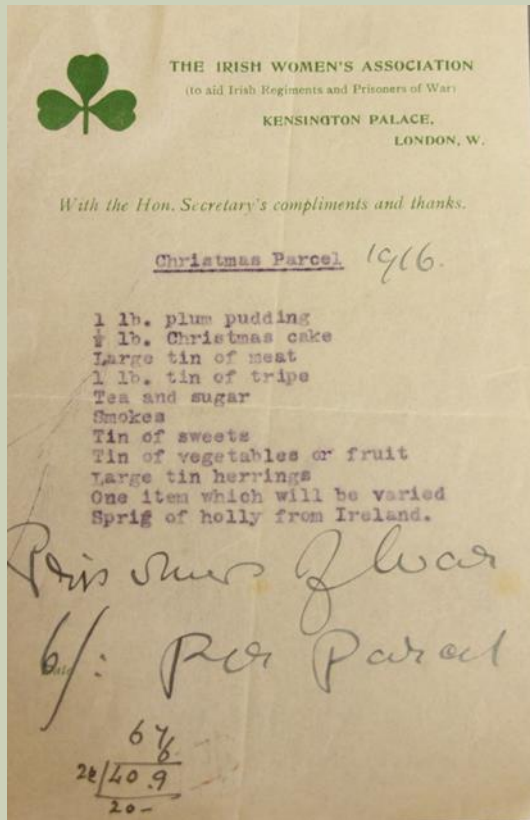 THE IRISH WOMEN'S ASSOCIATION
(to aid Irish Regiments and Prisoners of War)
KENSINGTON PALACE,
LONDON, W.
With the Hon. Secretary's compliments and thanks.
Christmas Parcel 1916.
1 lb. plum pudding
½ lb. Christmas cake
Large tin of meat
1 lb. tin of tripe
Tea and sugar
Smokes
Tin of sweets
Tin of vegetables or fruit
Large tin herrings
One item which will be varied
Sprig of holly from Ireland.
Prisoners of War
6/: Per Parcel
40.9
20-